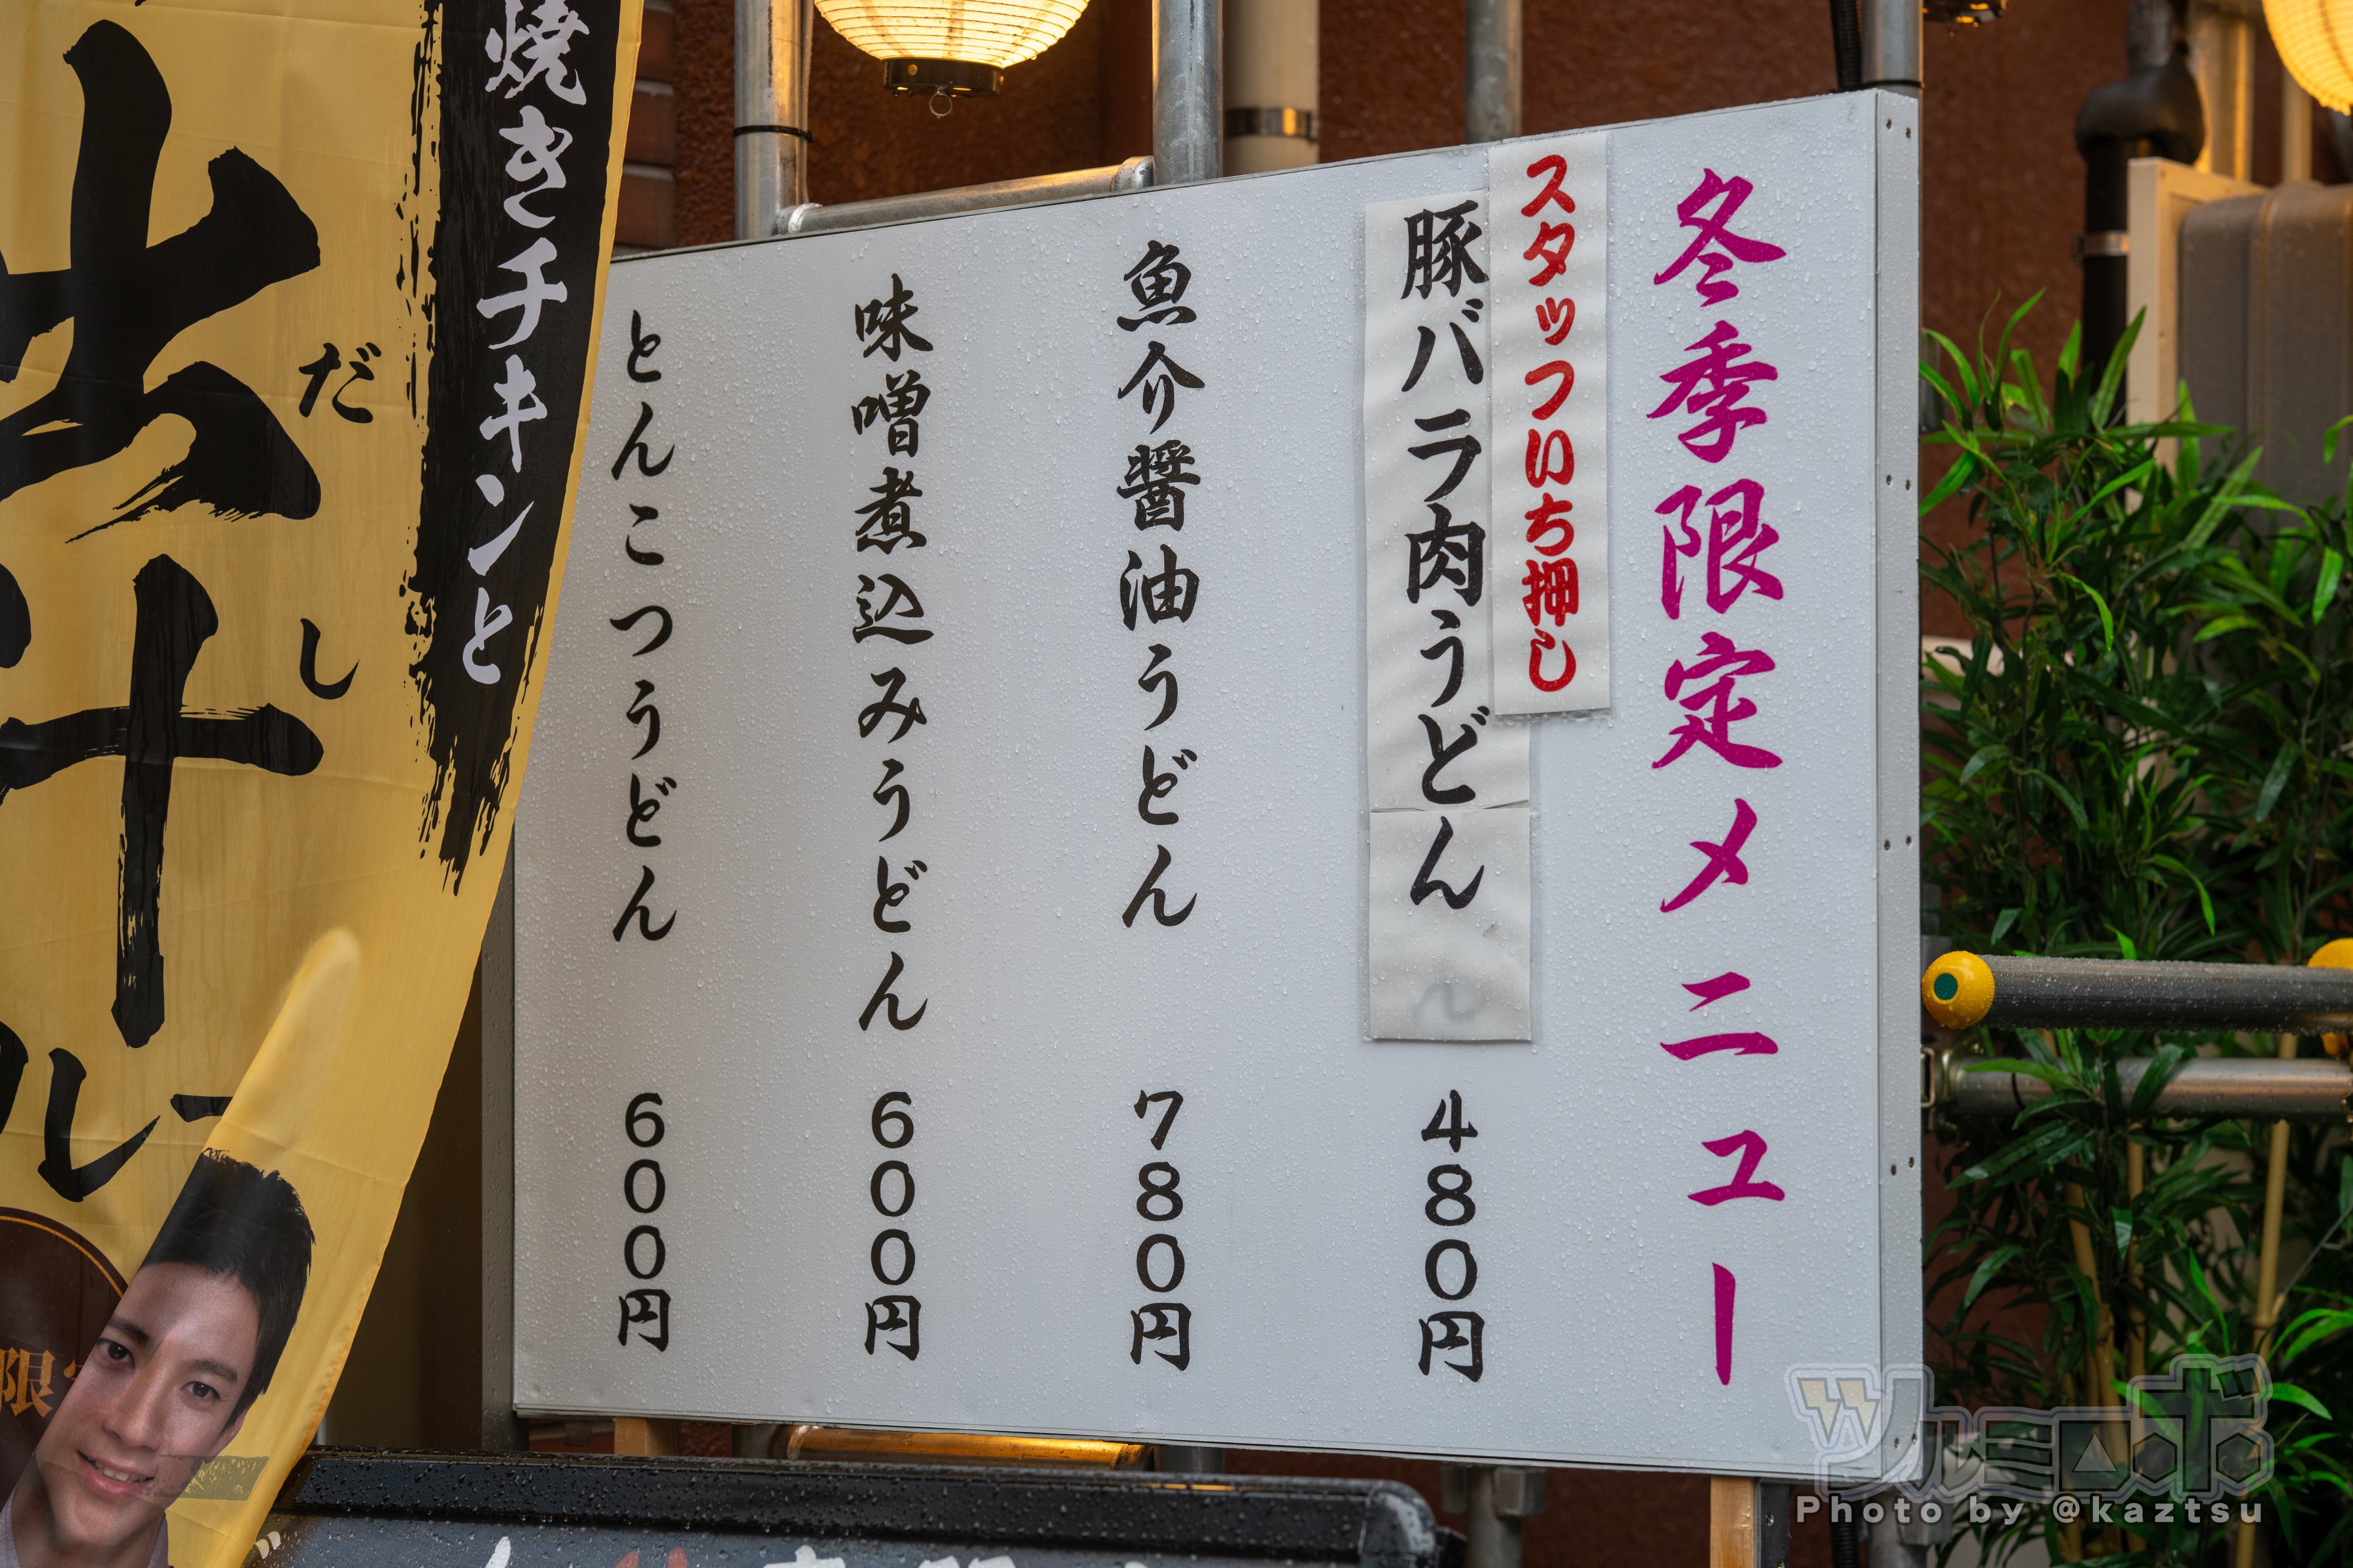 冬季限定メニュー
スタッフいち押し
豚バラ肉うどん 480円
魚介醤油うどん 780円
味噌煮込みうどん 600円
とんこつうどん 600円
焼きチキンと
だし
限
ツルミロボ
Photo by @kaztsu